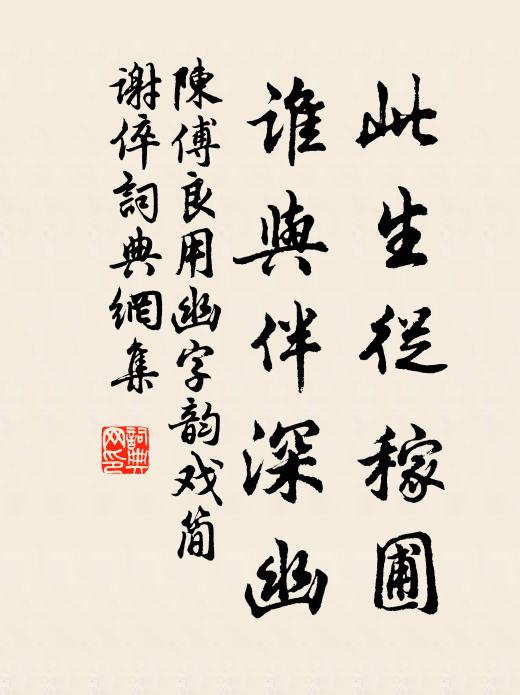 此生従稼圃
誰與伴深幽
陳傅良用幽字韵戏简
谢倅詞典網集
詞典
网印